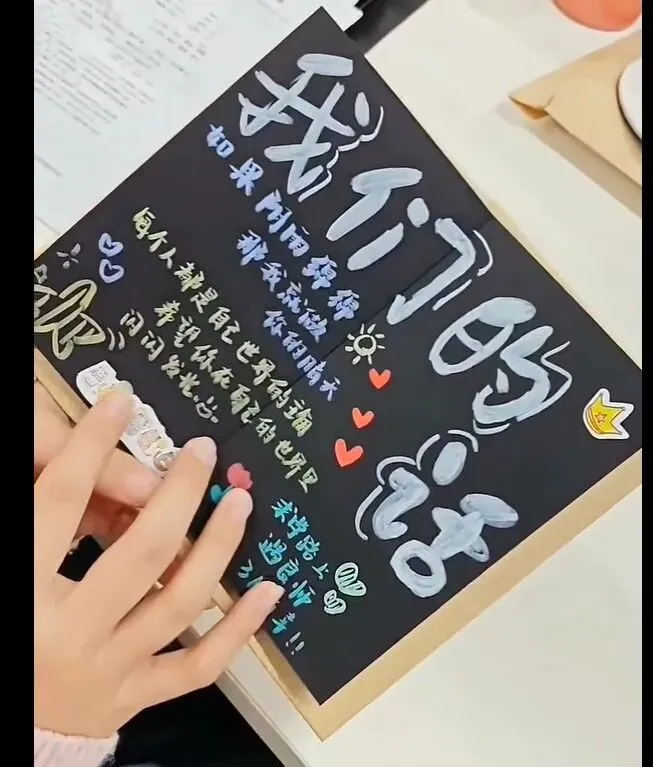 我们的话
如果阴雨绵绵
那我就做
你的晴天
每个人都是自己世界的
希望你在自己的世界里
闪闪发光
求学路上
遇良师
3 幸!!